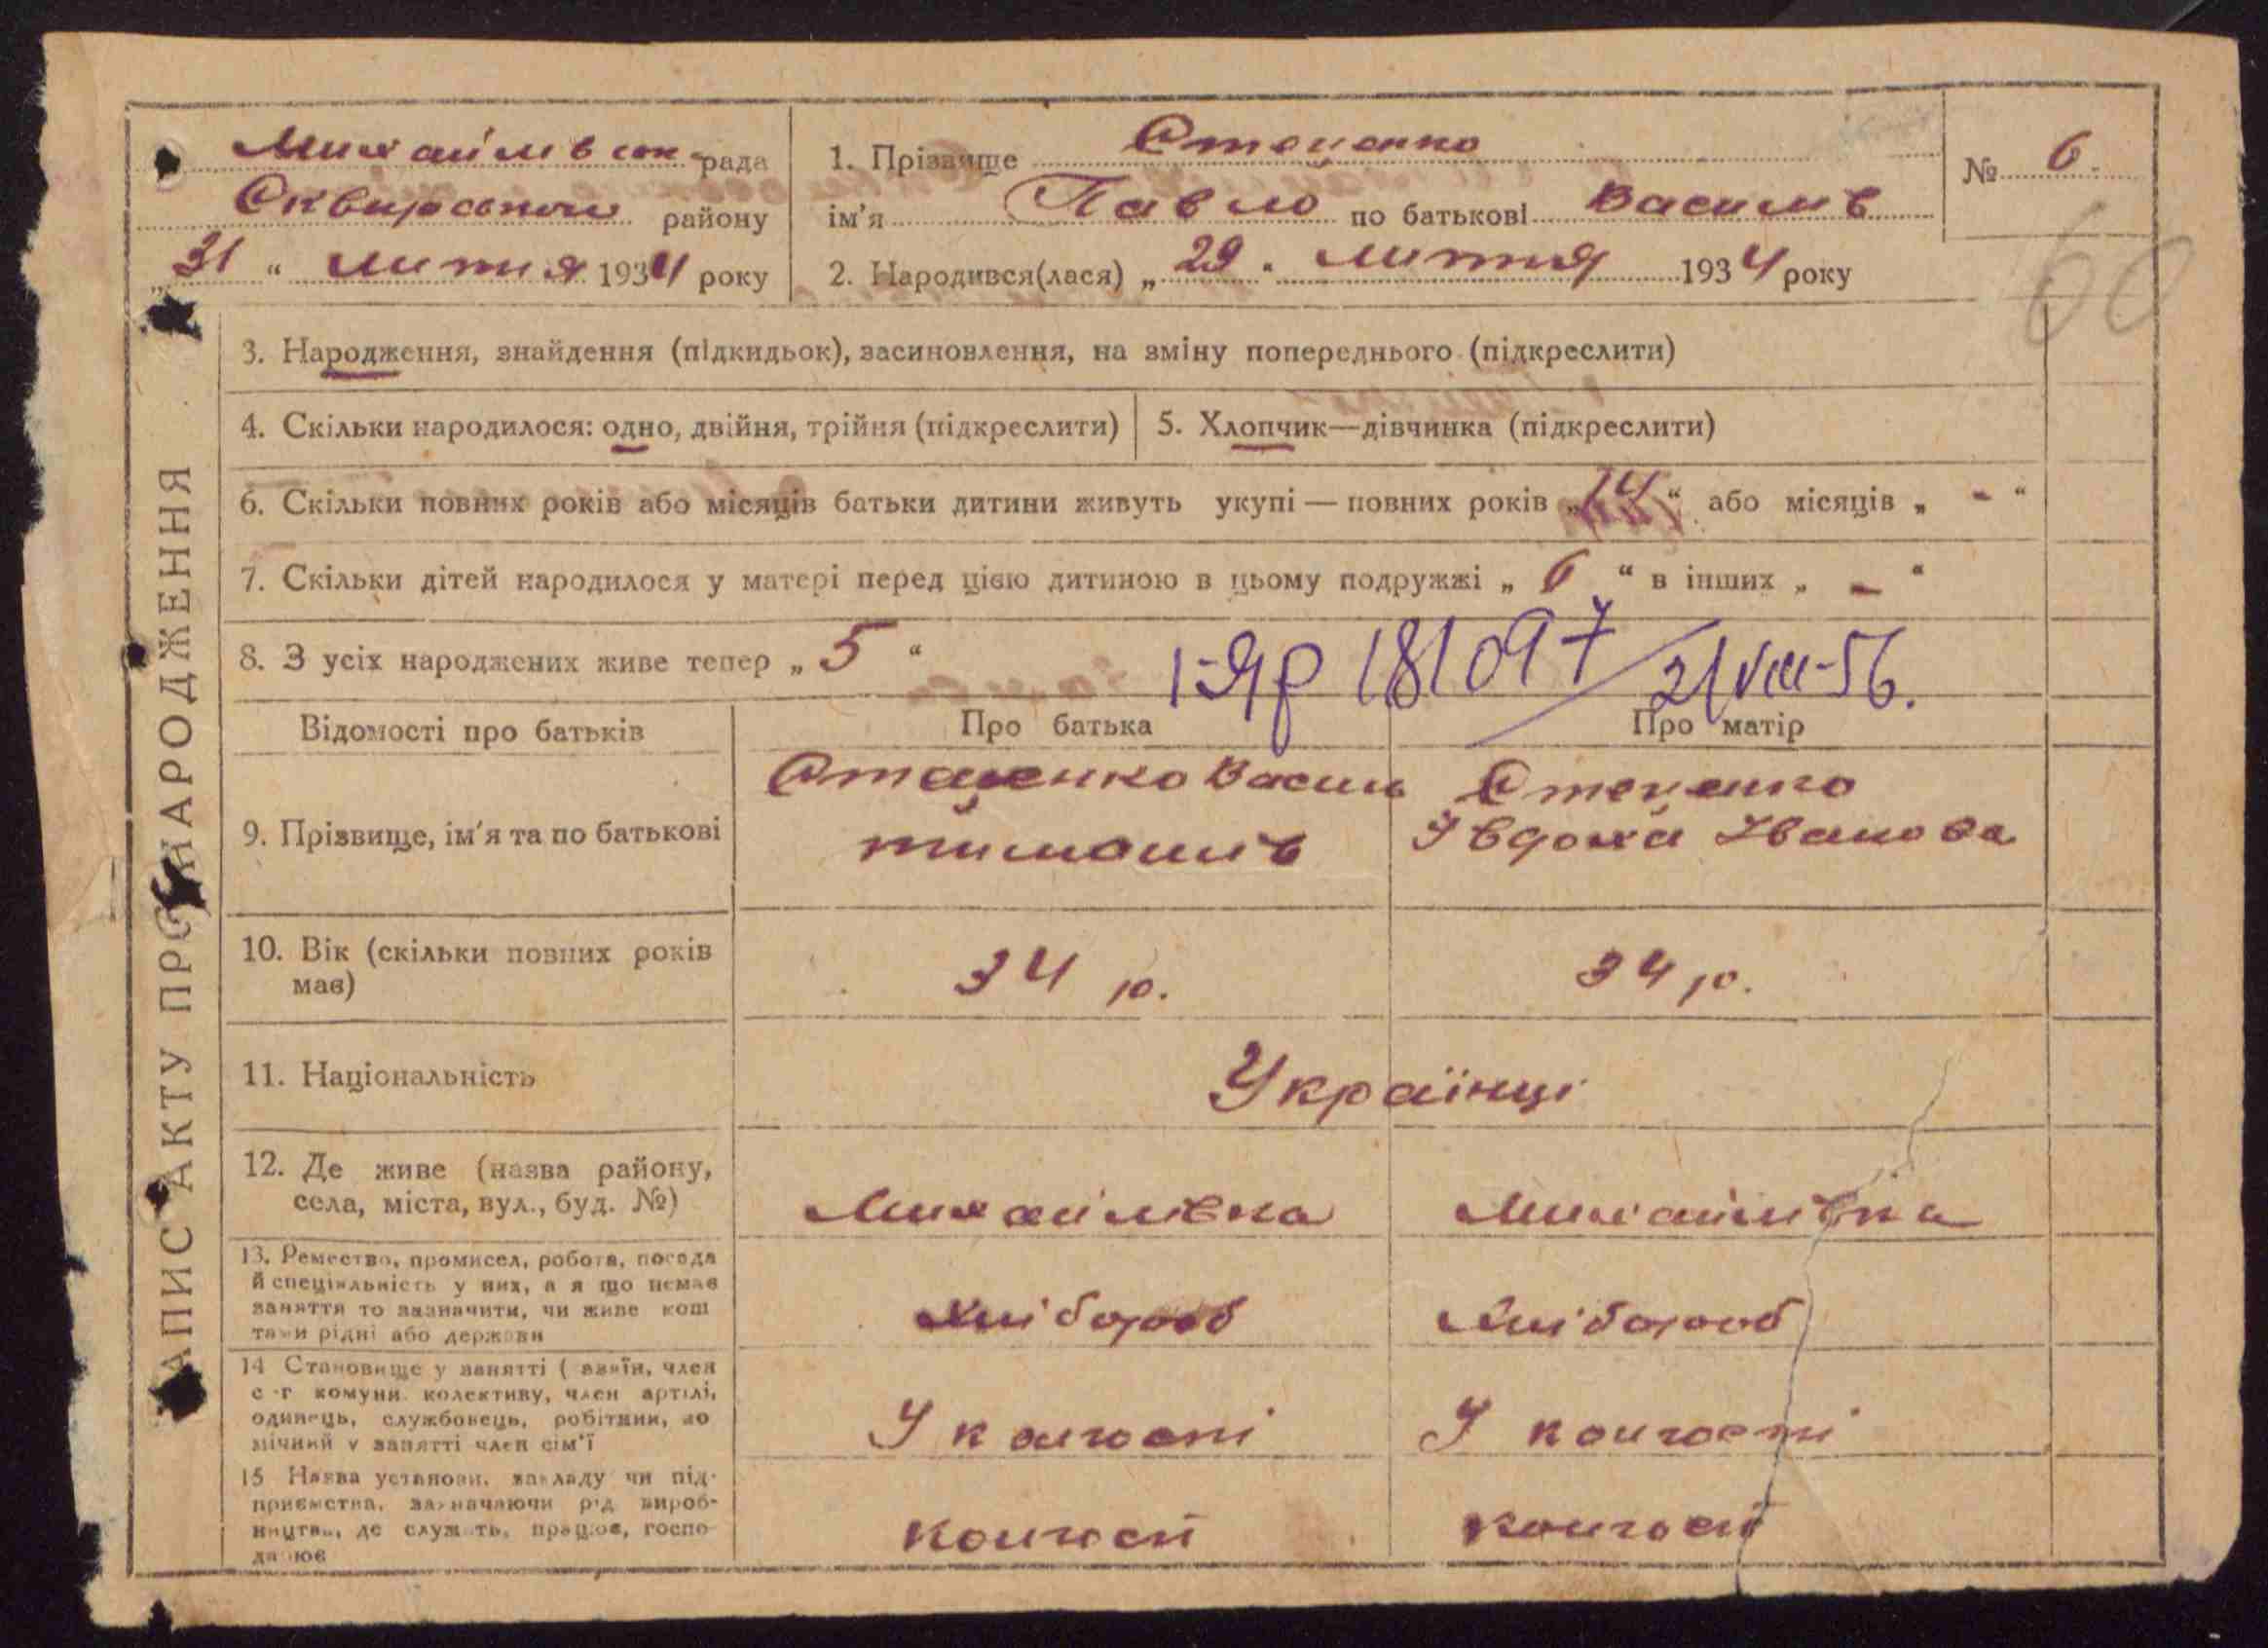 Михайлівсок рада
Сквирського району
„31“ литня 1934 року
1. Прізвище Стеценко
ім’я Павло по батькові Василів
2. Народився(лася) „29“ литня 1934 року
№ 6.
60
3. Народження, знайдення (підкидьок), засиновлення, на зміну попереднього (підкреслити)
4. Скільки народилося: одно, двійня, трійня (підкреслити)
5. Хлопчик—дівчинка (підкреслити)
6. Скільки повних років або місяців батьки дитини живуть укупі — повних років „14“ або місяців „ - “
7. Скільки дітей народилося у матері перед цією дитиною в цьому подружжі „ 6 “ в інших „ - “
8. З усіх народжених живе тепер „ 5 “
І-Яр 181097/21/VIII-56.
Відомості про батьків
Про батька
Про матір
9. Прізвище, ім’я та по батькові
Стеценко Василь
тимошів
Стеценко
Явдоха Іванова
10. Вік (скільки повних років
має)
34 р.
34 р.
11. Національність
Українці
12. Де живе (назва району,
села, міста, вул., буд. №)
Михайлівка
Михайлівка
13. Ремество, промисел, робота, посада
й спеціяльність у них, а я що немає
заняття то зазначити, чи живе кош
тами рідні або держави
хлібороб
хлібороб
14 Становище у занятті (хазяїн, член
с-г комуни колективу, член артілі,
одинець, службовець, робітник, по
мічний у занятті член сім’ї
У колгоспі
У колгоспі
15 Назва установи, закладу чи під-
приємства, зазначаючи рід вироб-
ництва, де служить, працює, госпо-
дарює
колгосп
колгосп
ЗАПИС АКТУ ПРО НАРОДЖЕННЯ